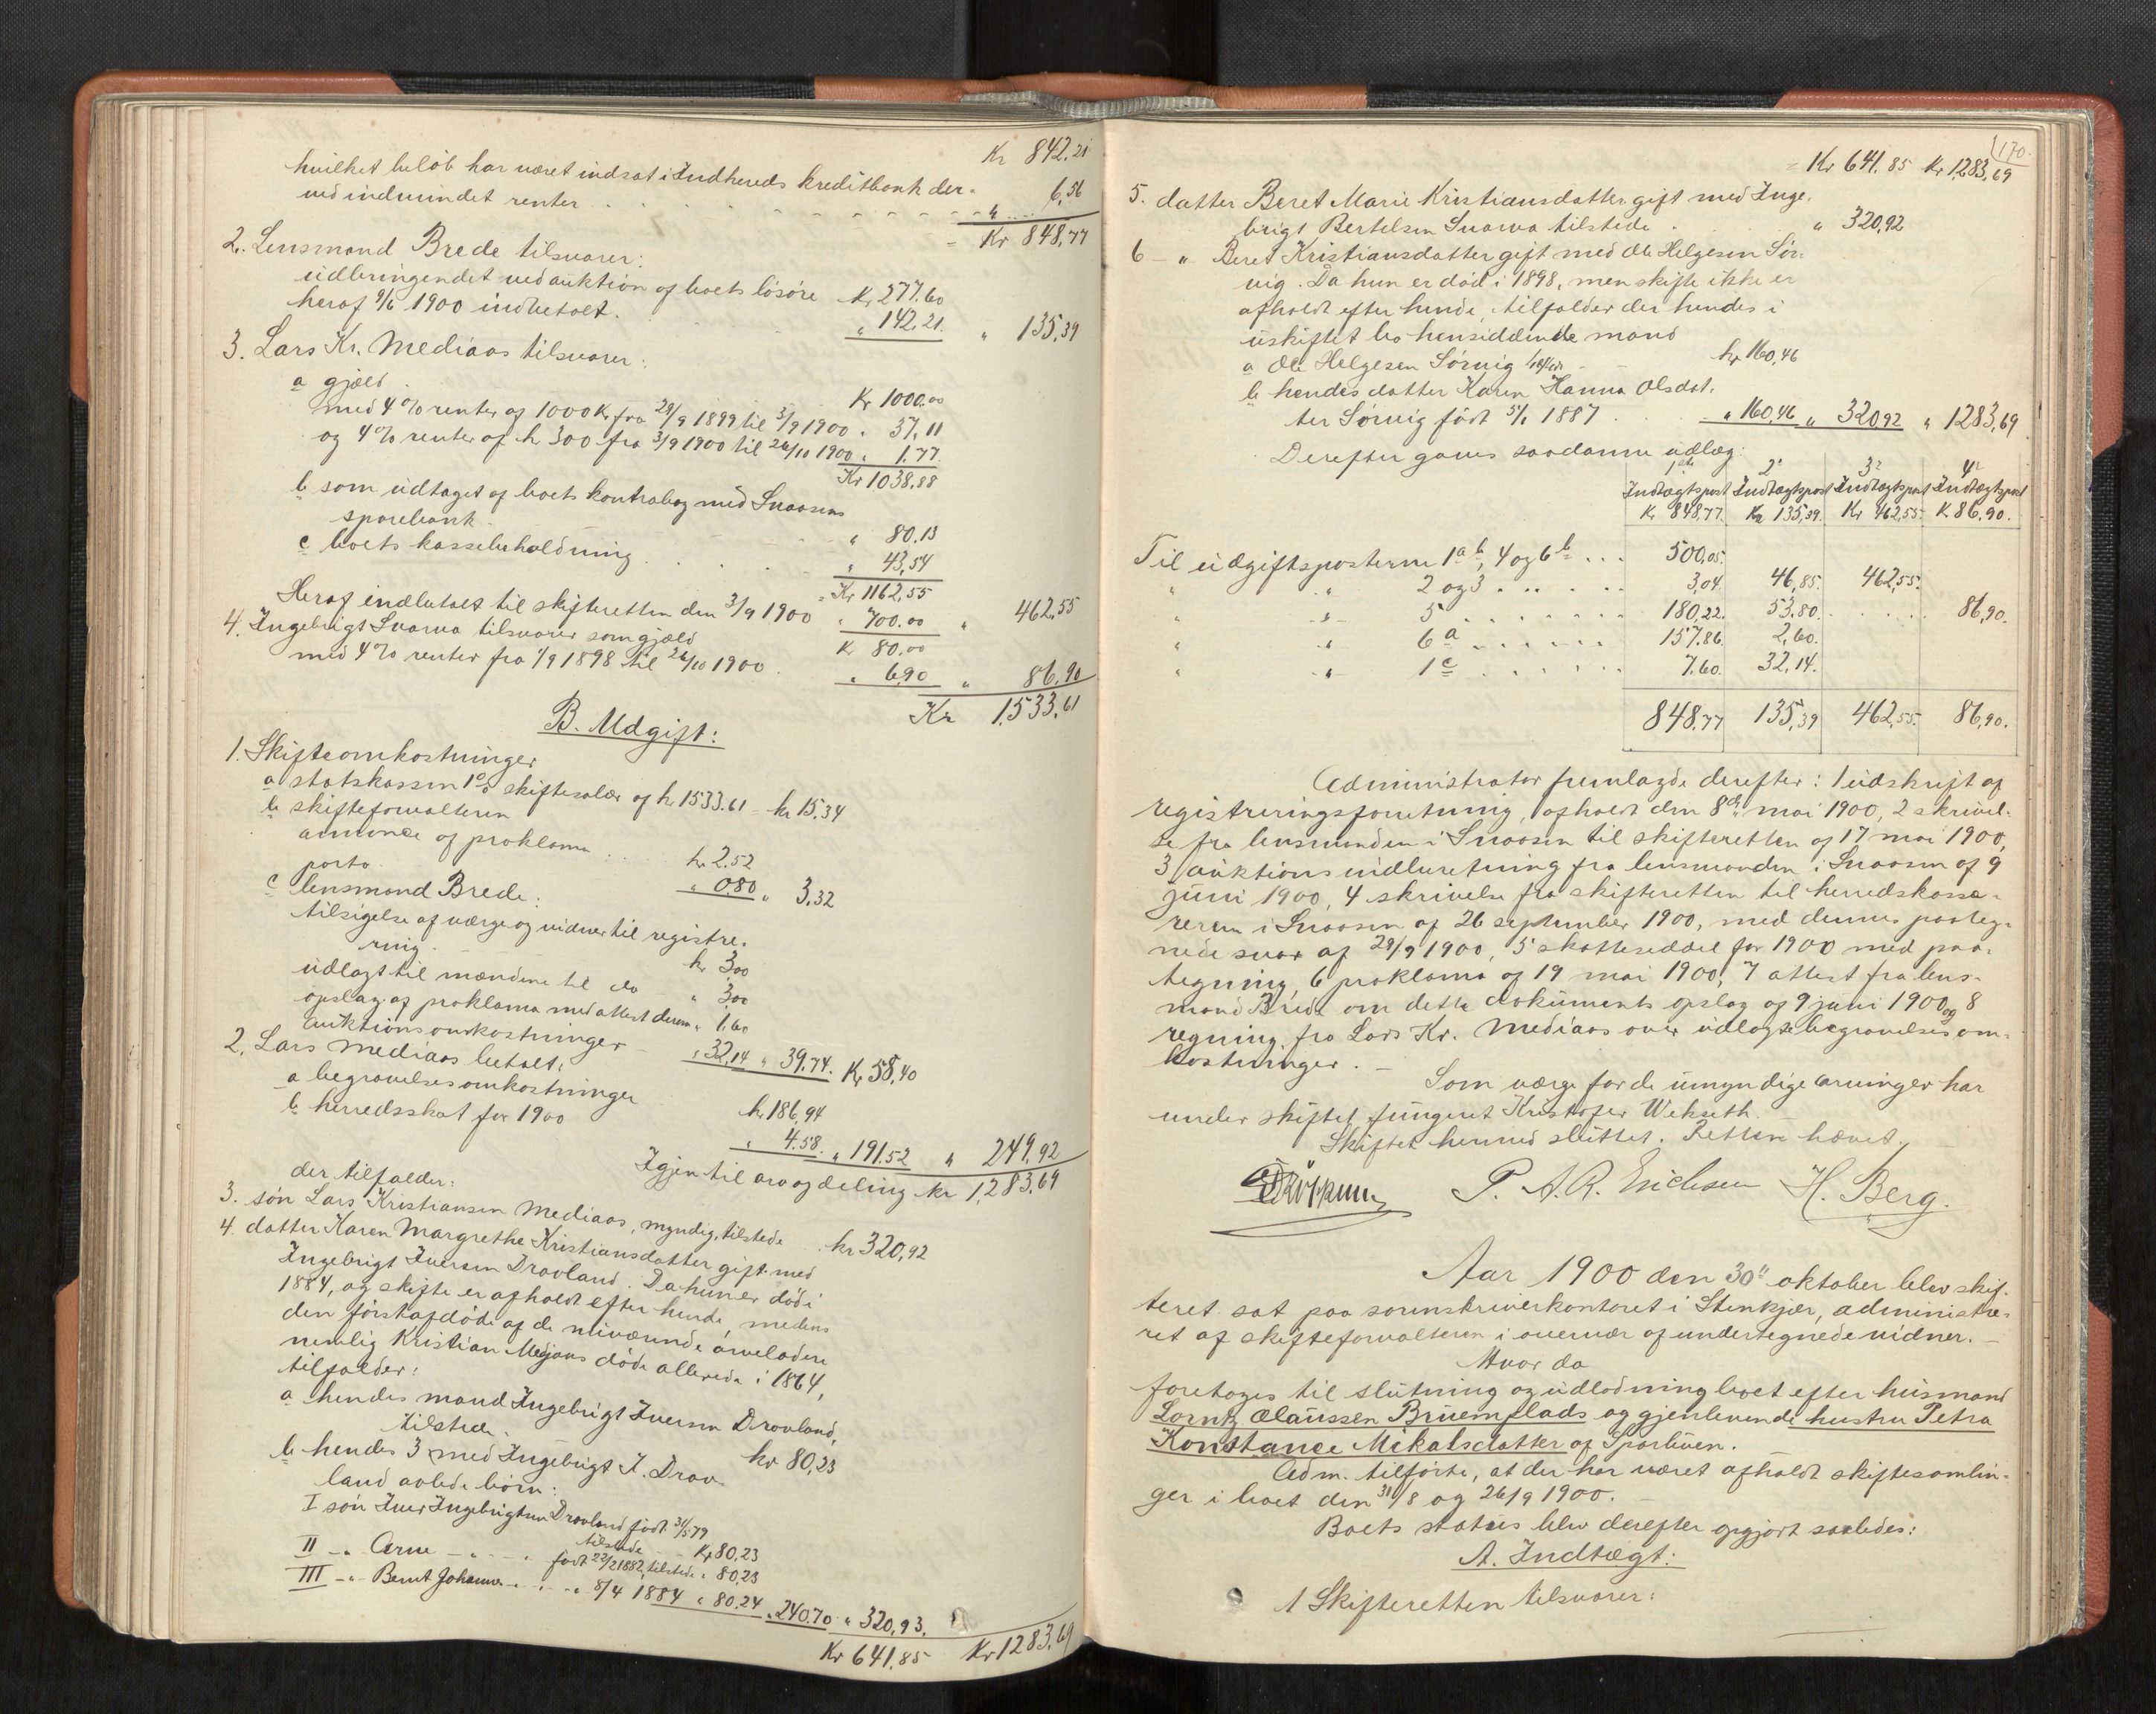 Kr 842,21
hvilket beløb har været indsat i Indherreds kreditbank der-
ved indvundet renter . . . . " 6,56
Kr 848,77
2. Lensmand Brede tilsvarer:
udbringendet ved auktion af boets løsøre Kr 277.60
heraf 9/6 1900 indbetalt. " 142,21. " 135,39
3. Lars Kr. Mediaas tilsvarer:
a gjæld . Kr 1000.00
med 4 % renter af 1000 Kr fra 29/9 1899 til 3/9 1900 . 37,11
og 4 % renter af kr 300 fra 3/9 1900 til 26/10 1900 " 1.77
Kr 1038,88
b som udtaget af boets kontrabog med Snaasens
sparebank . " 80.13
c boets kassebeholdning . . . . " 43,54
Kr 1162,55
Heraf indbetalt til skifteretten den 3/9 1900 " 700.00 " 462,55
4. Ingebrigt Svarva tilsvarer som gjæld K 80.00
med 4 % renter fra 1/9 1898 til 26/10 1900 . " 6,90 " 86,90
Kr 1533,61
B. Udgift:
1. Skifteomkostninger
a statskassen 1% skiftesalær af kr 1533.61 - kr 15,34
b skifteforvalteren
annonce af proklama . . kr 2.52
porto " 0.80 " 3,32
c lensmand Brede:
tilsigelse af værge og vidner til registre-
ring . kr 3,00
udlagt til mændene til do " 3,00
opslag af proklama med attest derom " 1.60
auktionsomkostninger " 32,14 " 39,74. Kr 58,40
2. Lars Mediaas betalt:
a begravelsesomkostninger kr 186,94
b herredsskat for 1900 " 4.58. " 191.52 " 249,92
Igjen til arv og deling kr 1,283,69
der tilfalder:
3. søn Lars Kristiansen Mediaas, myndig, tilstede kr 320,92
4. datter Karen Margrethe Kristiansdatter gift med
Ingebrigt Iversen Dravland. Da hun er død i
1884, og skifte er afholdt efter hende, medens
den førstafdøde af de nuværende arveladere
nemlig Kristian Mediaas døde allerede i 1864,
tilfalder:
a hendes mand Ingebrigt Iversen Dravland,
tilstede. kr 80,23
b hendes 3 med Ingebrigt I. Drav-
land avlede børn:
I søn Iver Ingebrigtsen Dravland født 31/5 79
tilstede Kr 80,23
II - " Arne - " - " født 22/2 1882, tilstede " 80,23
III - " Bernt Johannes - " - " 8/4 1884 " 80.24 " 240.70 " 320,93.
Kr 641,85 Kr 1283,69
170.
Kr 641,85 Kr 1283,69
5. datter Beret Marie Kristiansdatter gift med Inge-
brigt Bertelsen Svarva tilstede . " 320,92
6 - " Beret Kristiansdatter gift med Ole Helgesen Sør-
vig. Da hun er død i 1898, men skifte ikke er
afholdt efter hende, tilfalder der hendes i
uskiftet bo hensiddende mand
a Ole Helgesen Sørvig kr 160,46
b hendes datter Karen Hanna Olsdat-
ter Sørvig født 5/1 1887 . " 160,46 " 320,92 " 1283,69
Derefter gaves saadanne udlæg:
1ste 2den 3die 4de
Indtægtspost Indtægtspost Indtægtspost Indtægtspost
Kr 848,77. Kr 135,39. Kr 462,55. K 86,90.
Til udgiftsposterne 1 a b, 4 og 6 b . . . 500,05.
" " 2 og 3 . . . . . 3,04. 46,85. 462,55.
" " 5 . . . . . 180,22. 53,80. . . . . 86,90.
" " 6 a . . . . . 157.86. 2,60.
" " 1 c . . . . . 7.60. 32,14.
848,77 135,39 462,55. 86,90.
Administrator fremlagde derefter: 1 udskrift af
registreringsforretning, afholdt den 8de mai 1900, 2 skrivel-
se fra lensmanden i Snaasen til skifteretten af 17 mai 1900,
3 auktionsindberetning fra lensmanden i Snaasen af 9
juni 1900, 4 skrivelse fra skifteretten til herredskasse-
reren i Snaasen af 26 september 1900, med dennes paateg-
nede svar af 29/9 1900, 5 skatteseddel for 1900 med paa-
tegning, 6 proklama af 19 mai 1900, 7 attest fra lens-
mand Brede om dette dokuments opslag af 9 juni 1900 og 8
regning fra Lars Kr. Mediaas over udlagte begravelsesom-
kostninger. -
Som værge for de umyndige arvinger har
under skiftet fungeret Kristofer Wekseth.
Skiftet hermed sluttet. Retten hævet.
P. A. R. Erichsen H. Berg.
Aar 1900 den 30te oktober blev skif-
teret sat paa sorenskriverkontoret i Stenkjær, administre-
ret af skifteforvalteren i overvær af undertegnede vidner.
Hvor da
foretages til slutning og udlodning boet efter husmand
Lorntz Olaussen Bruemplads og gjenlevende hustru Petra
Konstance Mikalsdatter af Sparbuen.
Adm. tilførte, at der har været afholdt skiftesamlin-
ger i boet den 31/8 og 26/9 1900. -
Boets status blev derefter opgjort saaledes:
A. Indtægt:
1 Skifteretten tilsvarer: